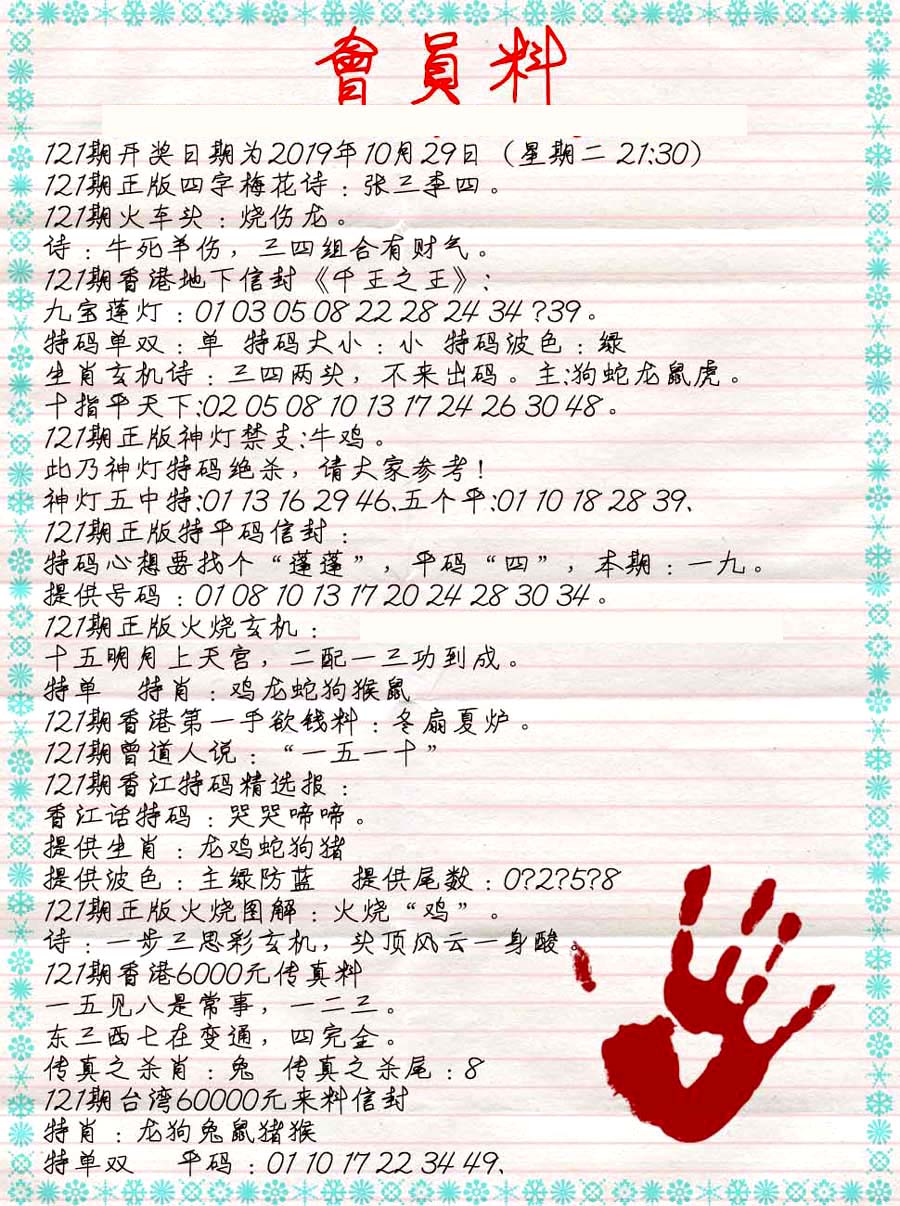 會員料
121期开奖日期为2019年10月29日（星期二 21:30）
121期正版四字梅花诗：张三李四。
121期火车头：烧伤龙。
诗：牛死羊伤，三四组合有财气。
121期香港地下信封《千王之王》:
九宝莲灯：01 03 05 08 22 28 24 34 ?39。
特码单双：单 特码大小：小 特码波色：绿
生肖玄机诗：三四两头，不来出码。主:狗蛇龙鼠虎。
十指平天下:02 05 08 10 13 17 24 26 30 48。
121期正版神灯禁支:牛鸡。
此乃神灯特码绝杀，请大家参考！
神灯五中特:01 13 16 29 46、五个平:01 10 18 28 39、
121期正版特平码信封：
特码心想要找个“蓬蓬”，平码“四”，本期：一九。
提供号码：01 08 10 13 17 20 24 28 30 34。
121期正版火烧玄机：
十五明月上天宫，二配一三功到成。
特单 特肖：鸡龙蛇狗猴鼠
121期香港第一手欲钱料：冬扇夏炉。
121期曾道人说：“一五一十”
121期香江特码精选报：
香江话特码：哭哭啼啼。
提供生肖：龙鸡蛇狗猪
提供波色：主绿防蓝 提供尾数：0?2?5?8
121期正版火烧图解：火烧“鸡”。
诗：一步三思彩玄机，头顶风云一身酸。
121期香港6000元传真料
一五见八是常事，一二三。
东三西七在变通，四完全。
传真之杀肖：兔 传真之杀尾：8
121期台湾60000元来料信封
特肖：龙狗兔鼠猪猴
特单双 平码：01 10 17 22 34 49、